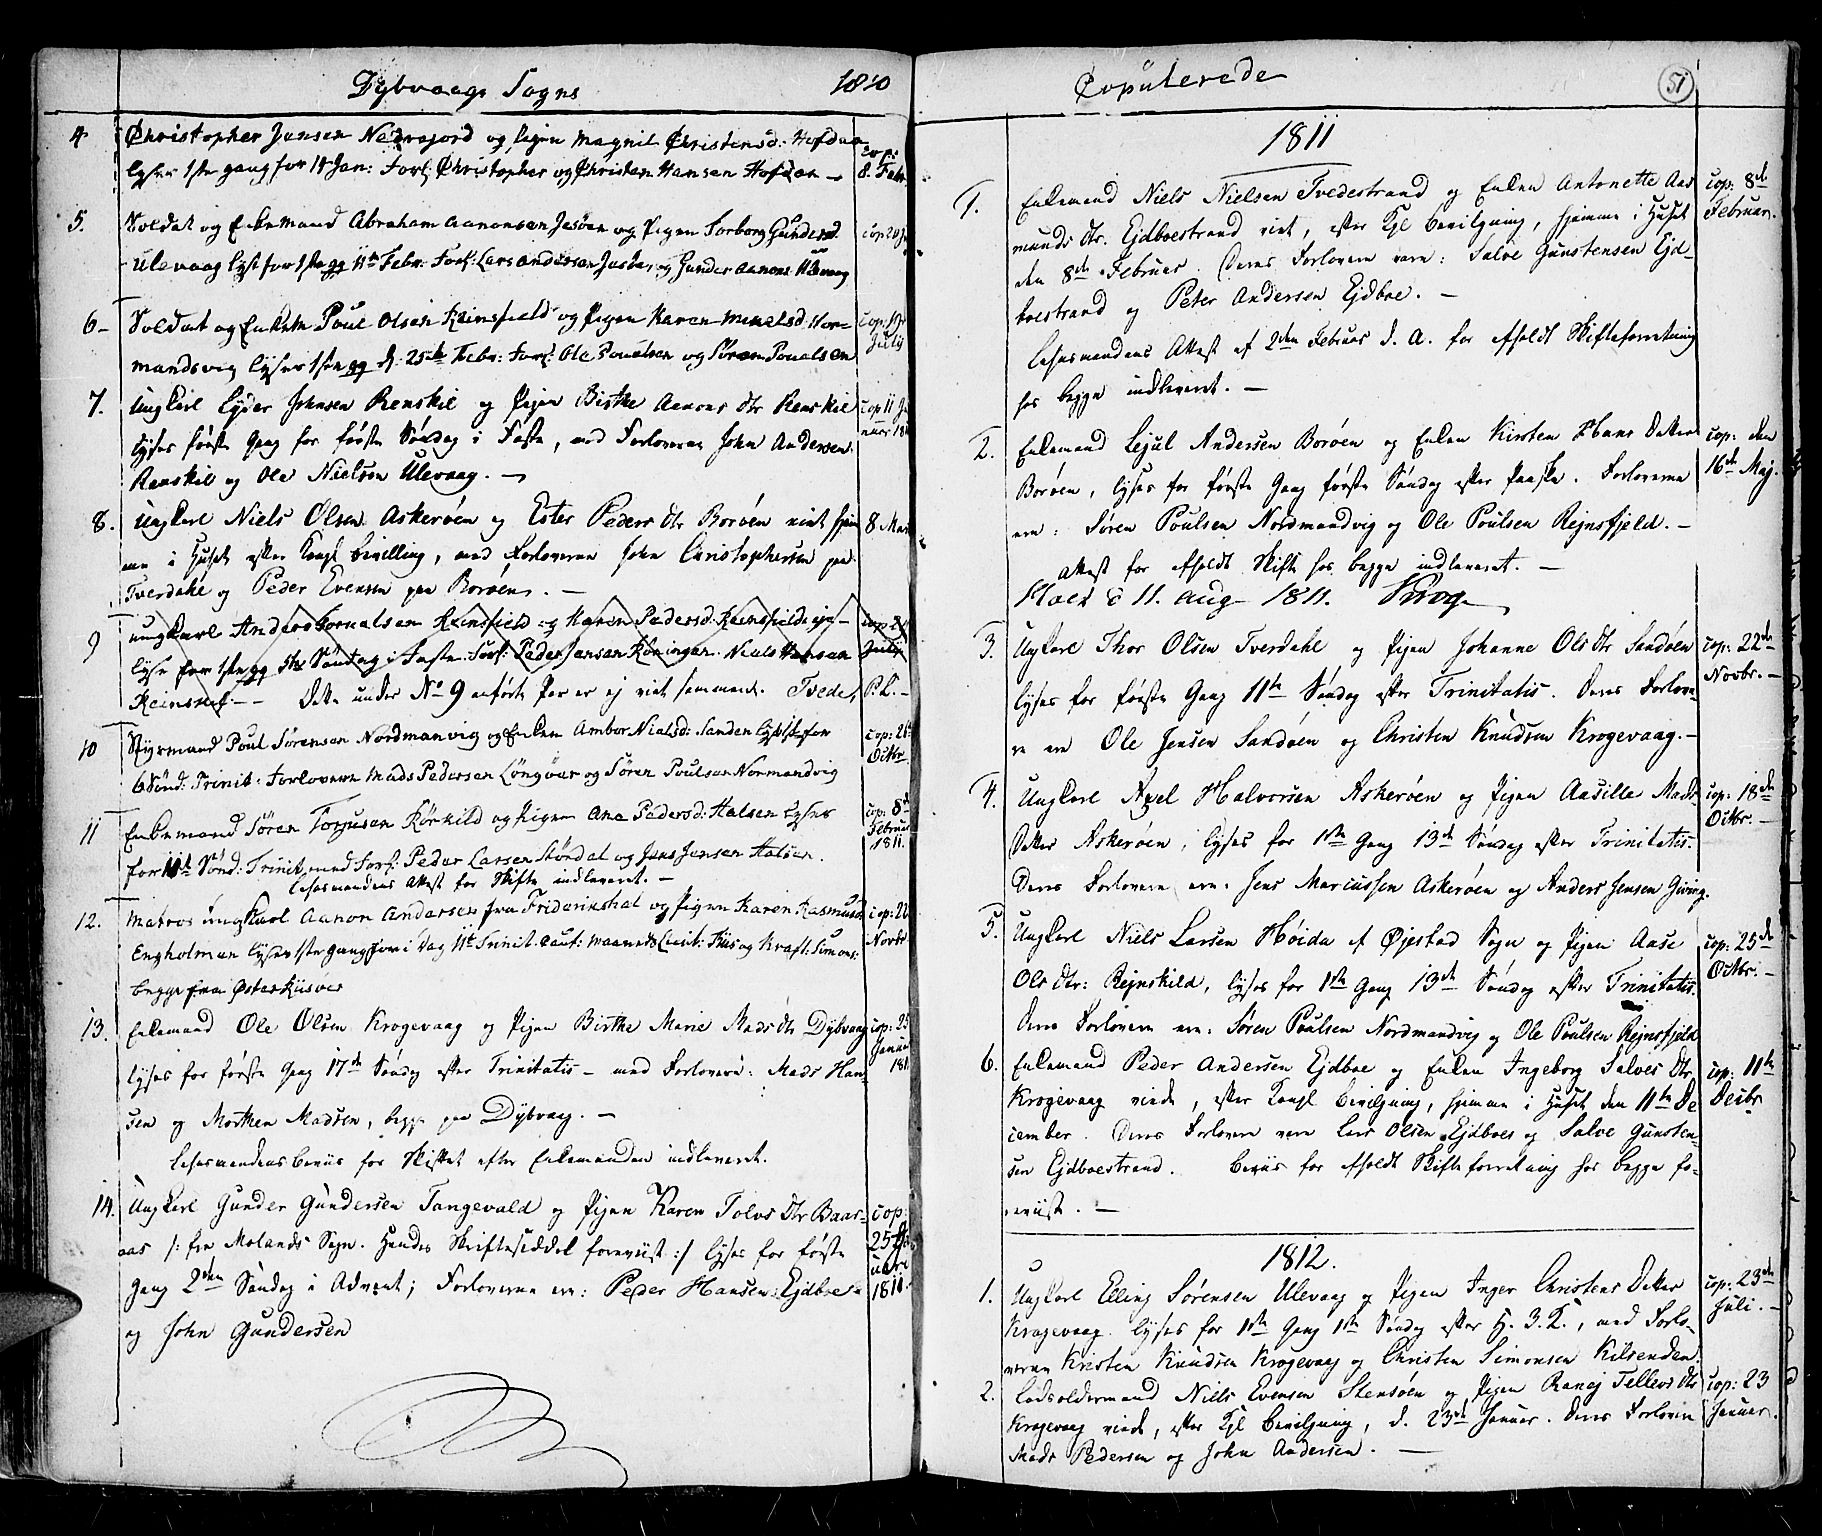 Dybvaags Sogns 1810
4 Christopher Jensen Nedrejord og Pigen Magnil Christensd: Hofdan
lyses 1ste gang for 14 Jan: Forl: Christopher og Christen Hansen Hofdan —
cop: 8. Febr
5. Soldat og Enkemand Abraham Aanonsen Jesøen og Pigen Torborg Gundersd
Ulevaag lyst for 1ste gg 11te Febr: Forl: Lars Andersen og Gunder Aanons Ulevaag
cop 20
6 — Soldat og Enkem Poul Olsen Reinsfield og Pigen Karen Nielsd Nor-
mandsvig lyses 1ste gg d. 25de Febr: Forl: Ole Pouelsen og Søren Poualsen
cop: 19 July
7. Ungkarl Eyder Johnsen Renskil og Pigen Birthe Aanons Dtr Renskil
lyses første Gang for første Søndag i Faste, med Forloverne John Andersen
Renskil og Ole Nielsen Ulevaag. —
cop 11
8. Ungkarl Niels Olsen Askerøen og Ester Peders Dtr Borøen viet hjem-
me i Huset efter Kongl Bevilling, med Forloverne John Christophersen paa
Tverdahl og Peder Evensen paa Borøen. —
8 Mar
9 Ungkarl Anders Reinsfield og Karen Pedersd: Reinsfield
lyse for 1ste gg Søndag i Faste. Forl: Peder Jensen Niels Hansen
Reinsfief — Dette under No 9 anførte Par er ej viet sammen. Tvede, P. L. —
10 Styrmand Poul Sørensen Nordmanvig og Enken Ambor Nielsd: Sanden lyst 1ste for
6 Sønd: Trinit: Forlovere Mads Pedersen Longøer og Søren Poulsen Normandvig
cop: 21 Octbr
11 Enkemand Søren Torjusen Rørkild og Pigen Ane Pedersd: Halsen lyses
for 11te Sønd: Trinit, med Forl: Peder Larsen Støndal og Jens Jensen Halsen.
Lehnsmandens Attest for Skifte indleveret. —
cop: 8de Februar 1811.
12. Matros Ungkarl Aanon Andersen fra Friderikshal og Pigen Karen Rasmusd
Engholmen lyses 1ste gang for i Dag 11te Trinit. og Kraft: Simons:
begge fra Østerriisøer
cop: 22 Novbr
13. Enkemand Ole Olsen Krogevaag og Pigen Birthe Marie Mads Dtr Dybvaag
lyses for første Gang 17de Søndag efter Trinitatis — med Forlovere: Mads Han-
sen og Morthen Madsen, begge paa Dybvaag. —
Lehnsmandens Beviis for Skiftet efter Enkemanden indleveret.
cop: 25 Januar 181
14. Ungkarl Gunder Gundersen Tangevald og Pigen Karen Tolvs Dtr Baas-
aas /: fra Molands Sogn. Hendes Skrifteseddel foreviist :/ lyses for første
Gang 2den Søndag i Advent; Forloverne ere: Peder Hansen Ejdboe
og John Gundersen
cop: 25
Copulerede
51
1811
1. Enkemand Niels Nielsen Tvedestrand og Enken Antonette Aas
munds Dtr. Ejdboestrand viet, efter Kgl Bevilgning, hjemme i Huset
den 8de Februar. Deres Forlovere vare: Salve Gunstensen Ejd-
boestrand og Peter Andersen Ejdboe. —
Lehnsmandens Attest af 2den Februar d. A. for afholdt Skifteforretning
hos begge indleveret. —
cop: 8de Februar.
2. Enkemand Lejul Andersen Borøen og Enken Kirsten Hans Datter
Borøen, lyses for første Gang første Søndag efter Paaske. Forloverne
ere: Søren Poulsen Nordmandvig og Ole Poulsen Rejnsfjeld. —
Attest for afholdt Skifte hos begge indleveret. —
cop: den 16de Maj.
Holt d 11. Aug 1811. Krog
3. Ungkarl Thor Olsen Tverdahl og Pigen Johanne Ols Dtr Sandøen
lyses for første Gang 11te Søndag efter Trinitatis. Deres Forlove-
re ere Ole Jensen Sandøen og Christen Knudsen Krogevaag. —
cop: 22de Novbr. —
4. Ungkarl Axel Halvorsen Askerøen og Pigen Aasille Mads
Datter Askerøen, lyses for 1ste Gang 13de Søndag efter Trinitatis.
Deres Forlovere ere: Jens Marcussen Askerøen og Anders Jensen Giving.
cop: 18de Octbr. —
5. Ungkarl Niels Larsen Høida af Øjestad Sogn og Pigen Aase
Ols Dtr: Rejnskild, lyses for 1ste Gang 13de Søndag efter Trinitatis.
Deres Forlovere ere: Søren Poulsen Nordmandvig og Ole Poulsen Rejnsfjeld
cop: 25de Octbr. —
6. Enkemand Peder Andersen Ejdboe og Enken Ingeborg Salves Dtr
Krogevaag viede, efter Kongl Bevilgning, hjemme i Huset den 11te De
cember. Deres Forlovere vare Lars Olsen Ejdboes og Salve Gunsten-
sen Ejdboestrand. Beviis for afholdt Skifteforretning hos begge fo-
reviist. —
cop: 11te Decbr
1812.
1. Ungkarl Elling Sørensen Ulevaag og Pigen Inger Christens Datter
Krogevaag. lyses for 1ste Gang 1ste Søndag efter H. 3. K., med Forlo-
verne Kristen Knudsen Krogevaag og Christen Simonsen Kilsenden.
cop: 23de Juli. —
2. Lodsoldermand Niels Evensen Stensøen og Pigen Ranej Tellevs Dtr
Krogevaag viede, efter Kgl Bevilgning, d. 23de Januar. Deres Forlovere
Mads Pedersen og John Andersen. —
cop: 23 Januar.